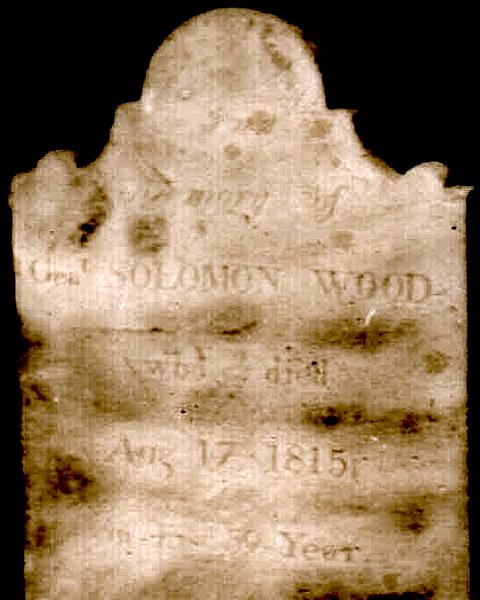 Genl SOLOMON WOOD
who died
Aug 17 1815
59 Year